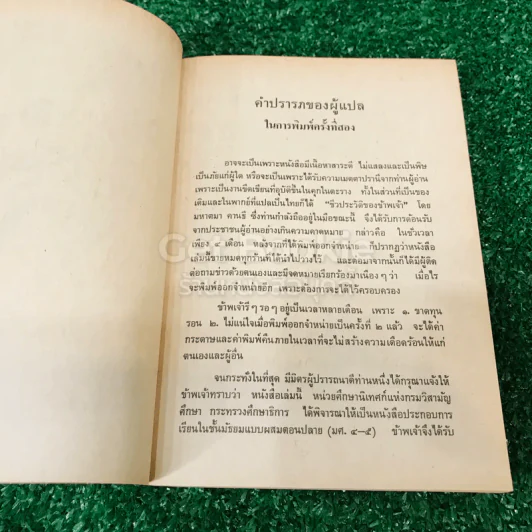 คำปรารภของผู้แปล
ในการพิมพ์ครั้งที่สอง
อาจจะเป็นเพราะหนังสือมีเนื้อหาสาระดี ไม่แสลงและเป็นพิษ
เป็นภัยแก่ผู้ใด หรือจะเป็นเพราะได้รับความเมตตาปรานีจากท่านผู้อ่าน
เพราะเป็นงานขีดเขียนที่อุบัติขึ้นในคุกในตะราง ทั้งในส่วนที่เป็นของ
เดิมและในพากย์ที่แปลเป็นไทยก็ได้ “ชีวประวัติของข้าพเจ้า” โดย
มหาตมา คานธี ซึ่งท่านกำลังถืออยู่ในมือขณะนี้ จึงได้รับการต้อนรับ
จากประชาชนผู้อ่านอย่างเกินความคาดหมาย กล่าวคือ ในชั่วเวลา
เพียง เดือน หลังจากที่ได้พิมพ์ออกจำหน่าย ก็ปรากฏว่าหนังสือ
เล่มนี้ขายหมดทุกร้านที่ได้นำไปวางไว้ และต่อมาจากนั้นก็ได้มีผู้ติด
ต่อถามข่าวด้วยตนเองและมีจดหมายเรียกร้องมาเนือง ๆ ว่า เมื่อไร
จะพิมพ์ออกจำหน่ายอีก เพราะต้องการจะได้ไว้ครอบครอง
ข้าพเจ้ารี ๆ รอ ๆ อยู่เป็นเวลาหลายเดือน เพราะ ๑. ขาดทุน
รอน ๒. ไม่แน่ใจเมื่อพิมพ์ออกจำหน่ายเป็นครั้งที่ ๒ แล้ว จะได้ค่า
กระดาษและค่าพิมพ์คืนภายในเวลาที่จะไม่สร้างความเดือดร้อนให้แก่
ตนเองและผู้อื่น
จนกระทั่งในที่สุด มีมิตรผู้ปรารถนาดีท่านหนึ่งได้กรุณาแจ้งให้
ข้าพเจ้าทราบว่า หนังสือเล่มนี้ หน่วยศึกษานิเทศก์แห่งกรมวิสามัญ
ศึกษา กระทรวงศึกษาธิการ ได้พิจารณาให้เป็นหนังสือประกอบการ
เรียนในชั้นมัธยมแบบผสมตอนปลาย (มศ. ๔–๕) ข้าพเจ้าจึงได้รับ